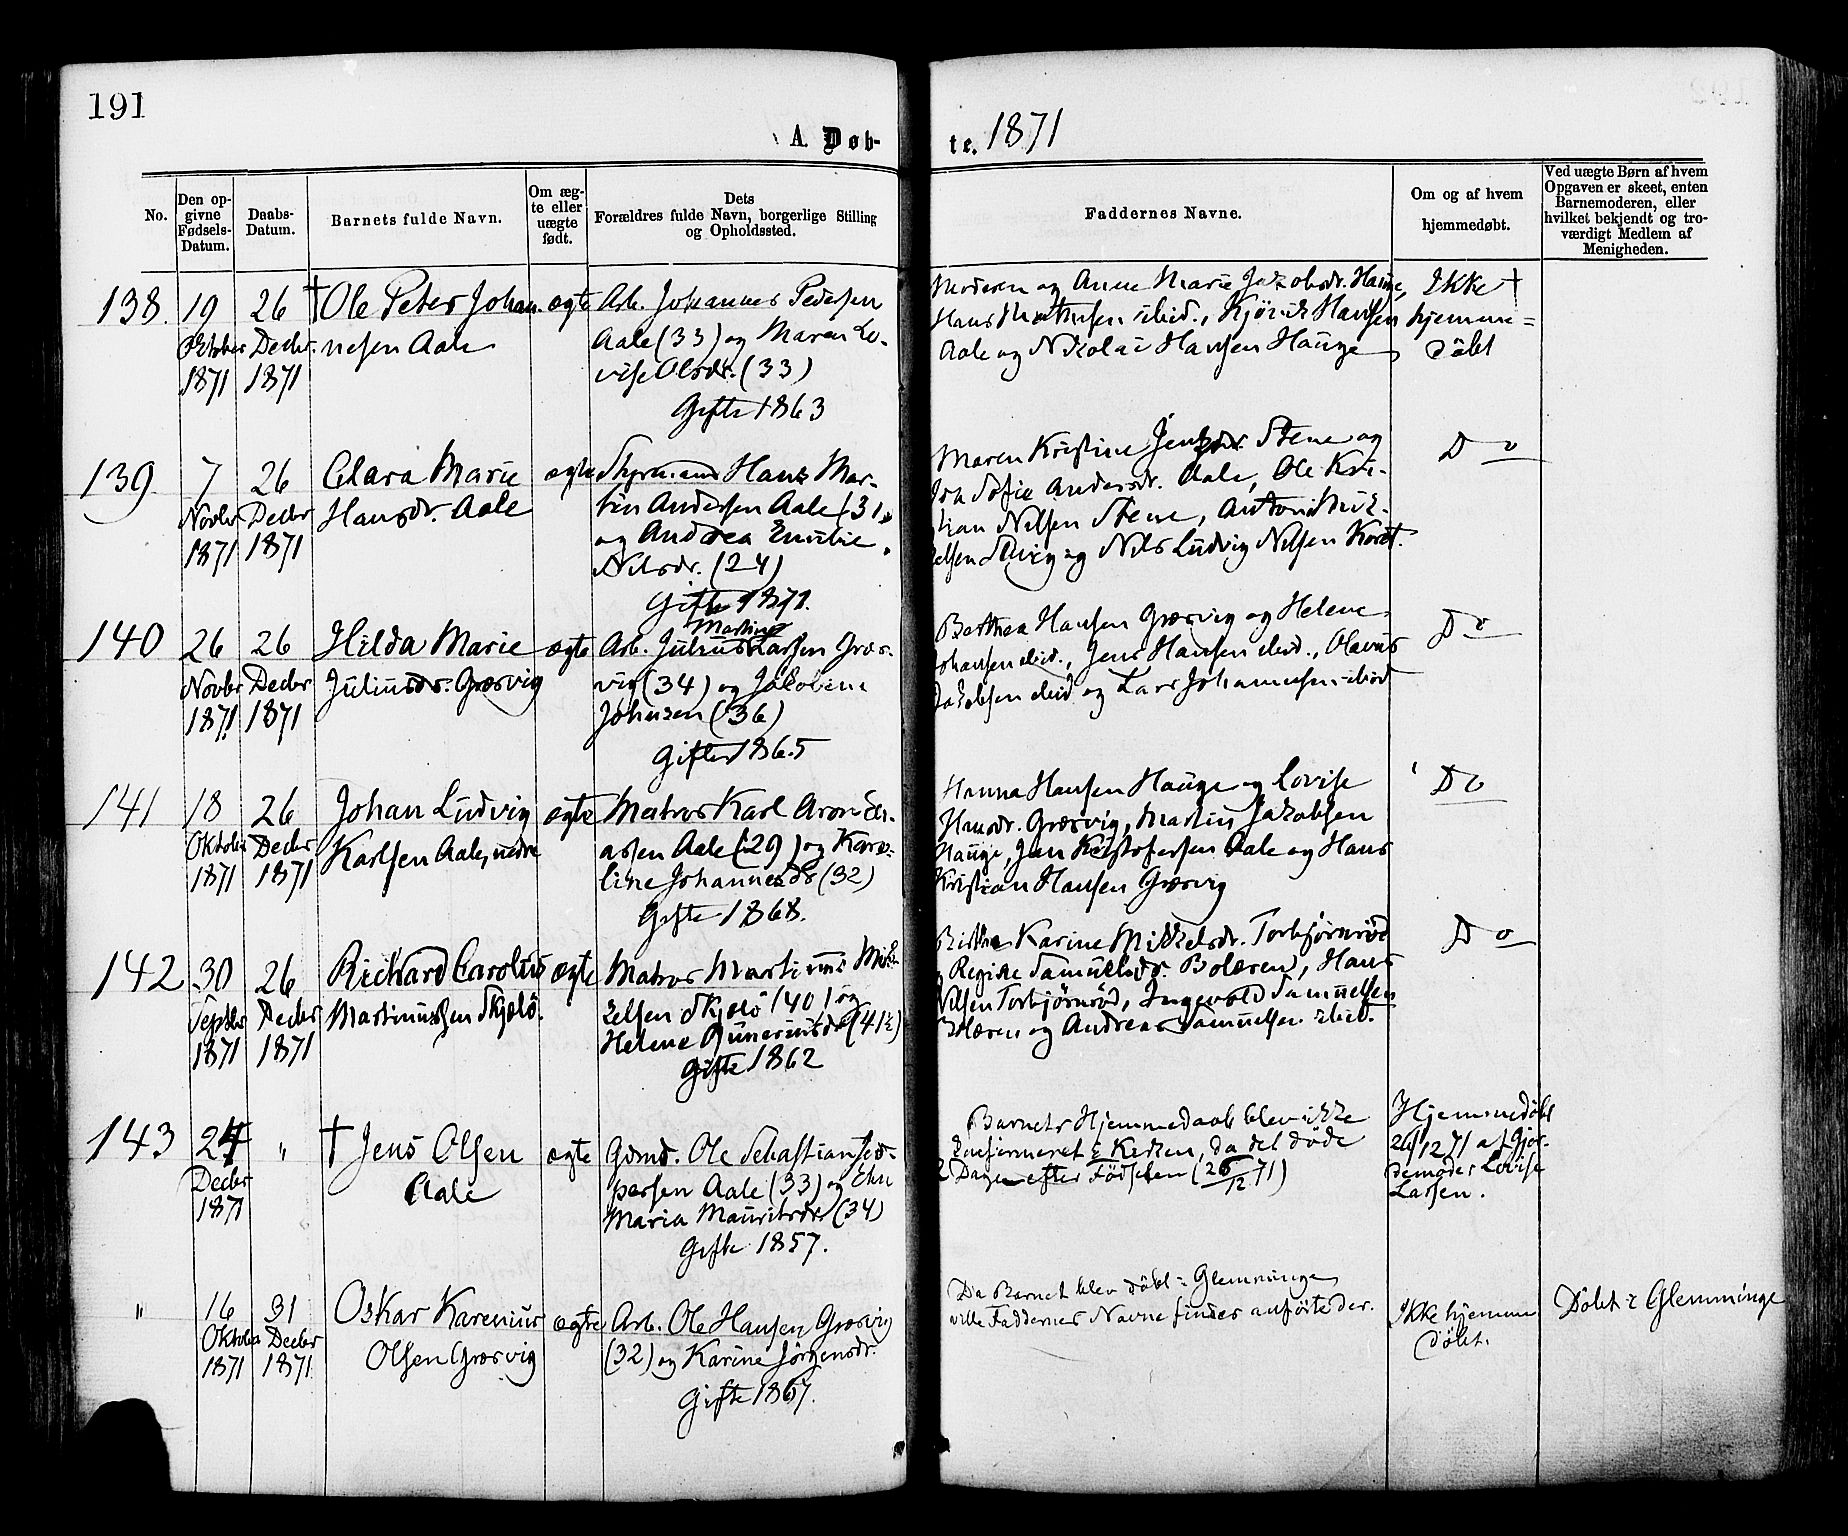 191
A. Døb-
te. 1871
No.
Den op-
givne
Fødsels-
Datum.
Daabs-
Datum.
Barnets fulde Navn.
Om æg-
te eller
uægte
født.
Dets
Forældres fulde Navn, borgerlige Stilling
og Opholdssted.
Faddernes Navne.
Om og af hvem
hjemmedøbt.
Ved uægte Børn af hvem
Opgaven er skeet, enten
Barnemoderen, eller
hvilket bekjendt og tro-
værdigt Medlem af
Menigheden.
138.
19
Oktober
1871
26
Decbr.
1871
† Ole Peter Johan-
nesen Aale
ægte
Arb. Johannes Pedersen
Aale (33) og Maren Lo-
vise Olsdr. (33)
Gifte 1863
Moderen og Anne Marie Jakobsdr. Hauge,
Hans ibid., Hansen
Aale og Nikolai Hansen Hauge
Ikke †
hjemme=
døbt
139
7
Novbr
1871
26
Decbr
1871
Clara Marie
Hansdr. Aale
ægte
Styrmand Hans Mar-
tin Andersen Aale (31)
og Andrea Emilie
Nilsdr. (24)
Gifte 1871.
Maren Kristine Stene og
Sofie Andersdr. Aale, Ole Kri-
stian Nilsen Stene, Anton Mik-
kelsen og Nils Ludvig Nilsen
Do
140
26
Novbr
1871
26
Decbr
1871
Hilda Marie
Juliusdr. Græsvig
ægte
Martin
Arb. Julius Larsen Græs-
vig (34) og Jakobine
Johnsen (36)
Gifte 1865
Berthea Hansen Græsvig og Helene
Johansen ibid., Jens Hansen ibid., Olavus
Jakobsen ibid og Lars Johannesen ibid
Do
141
18
Oktober
1871
26
Decbr
1871
Johan Ludvig
Karlsen Aale, nedre
ægte
Matros Karl Aron
Aale (29) og Karo-
line Johannesdr (32)
Gifte 1868.
Hanna Hansen Hauge og Lovise
Hansdr. Græsvig, Martin Jakobsen
Hauge, Jan Kristofersen Aale og Hans
Kristian Hansen Græsvig
Do
142
30
Septbr
1871
26
Decbr
1871
Richard Carolus
Martinussen Skjelø.
ægte
Matros Martinus Mik-
kelsen Skjelø (40) og
Helene Gunerius (41½)
Gifte 1862
Karine Mikkelsdr. Torbjørnrød
Regine Samuelsdr. Bolæren, Hans
Nilsen Torbjørnrød, Ingevold Samuelsen
Bolæren og Andreas Samuelsen ibid.
Do
143
24
Decbr
1871
"
† Jens Olsen
Aale
ægte
Gdmd. Ole Sebastian Jes-
persen Aale (33) og
Maria Mauritsdr (34)
Gifte 1857.
Barnets Hjemmedaab blev ikke
konfirmeret i Kirken, da det døde
2 Dage efter Fødselen (26/12 71)
Hjemmedøbt
26/12 71 af Gjor-
demoder Lovise
Larsen.
"
16
Oktober
1871
31
Decbr
1871
Oskar Karenius
Olsen Græsvig
ægte
Arb. Ole Hansen Græsvig
(32) og Karine Jörgensdr.
Gifte 1867.
Da Barnet blev døbt i Glemminge
ville Faddernes Navne findes anførte der.
Ikke hjemme
døbt.
Døbt i Glemminge